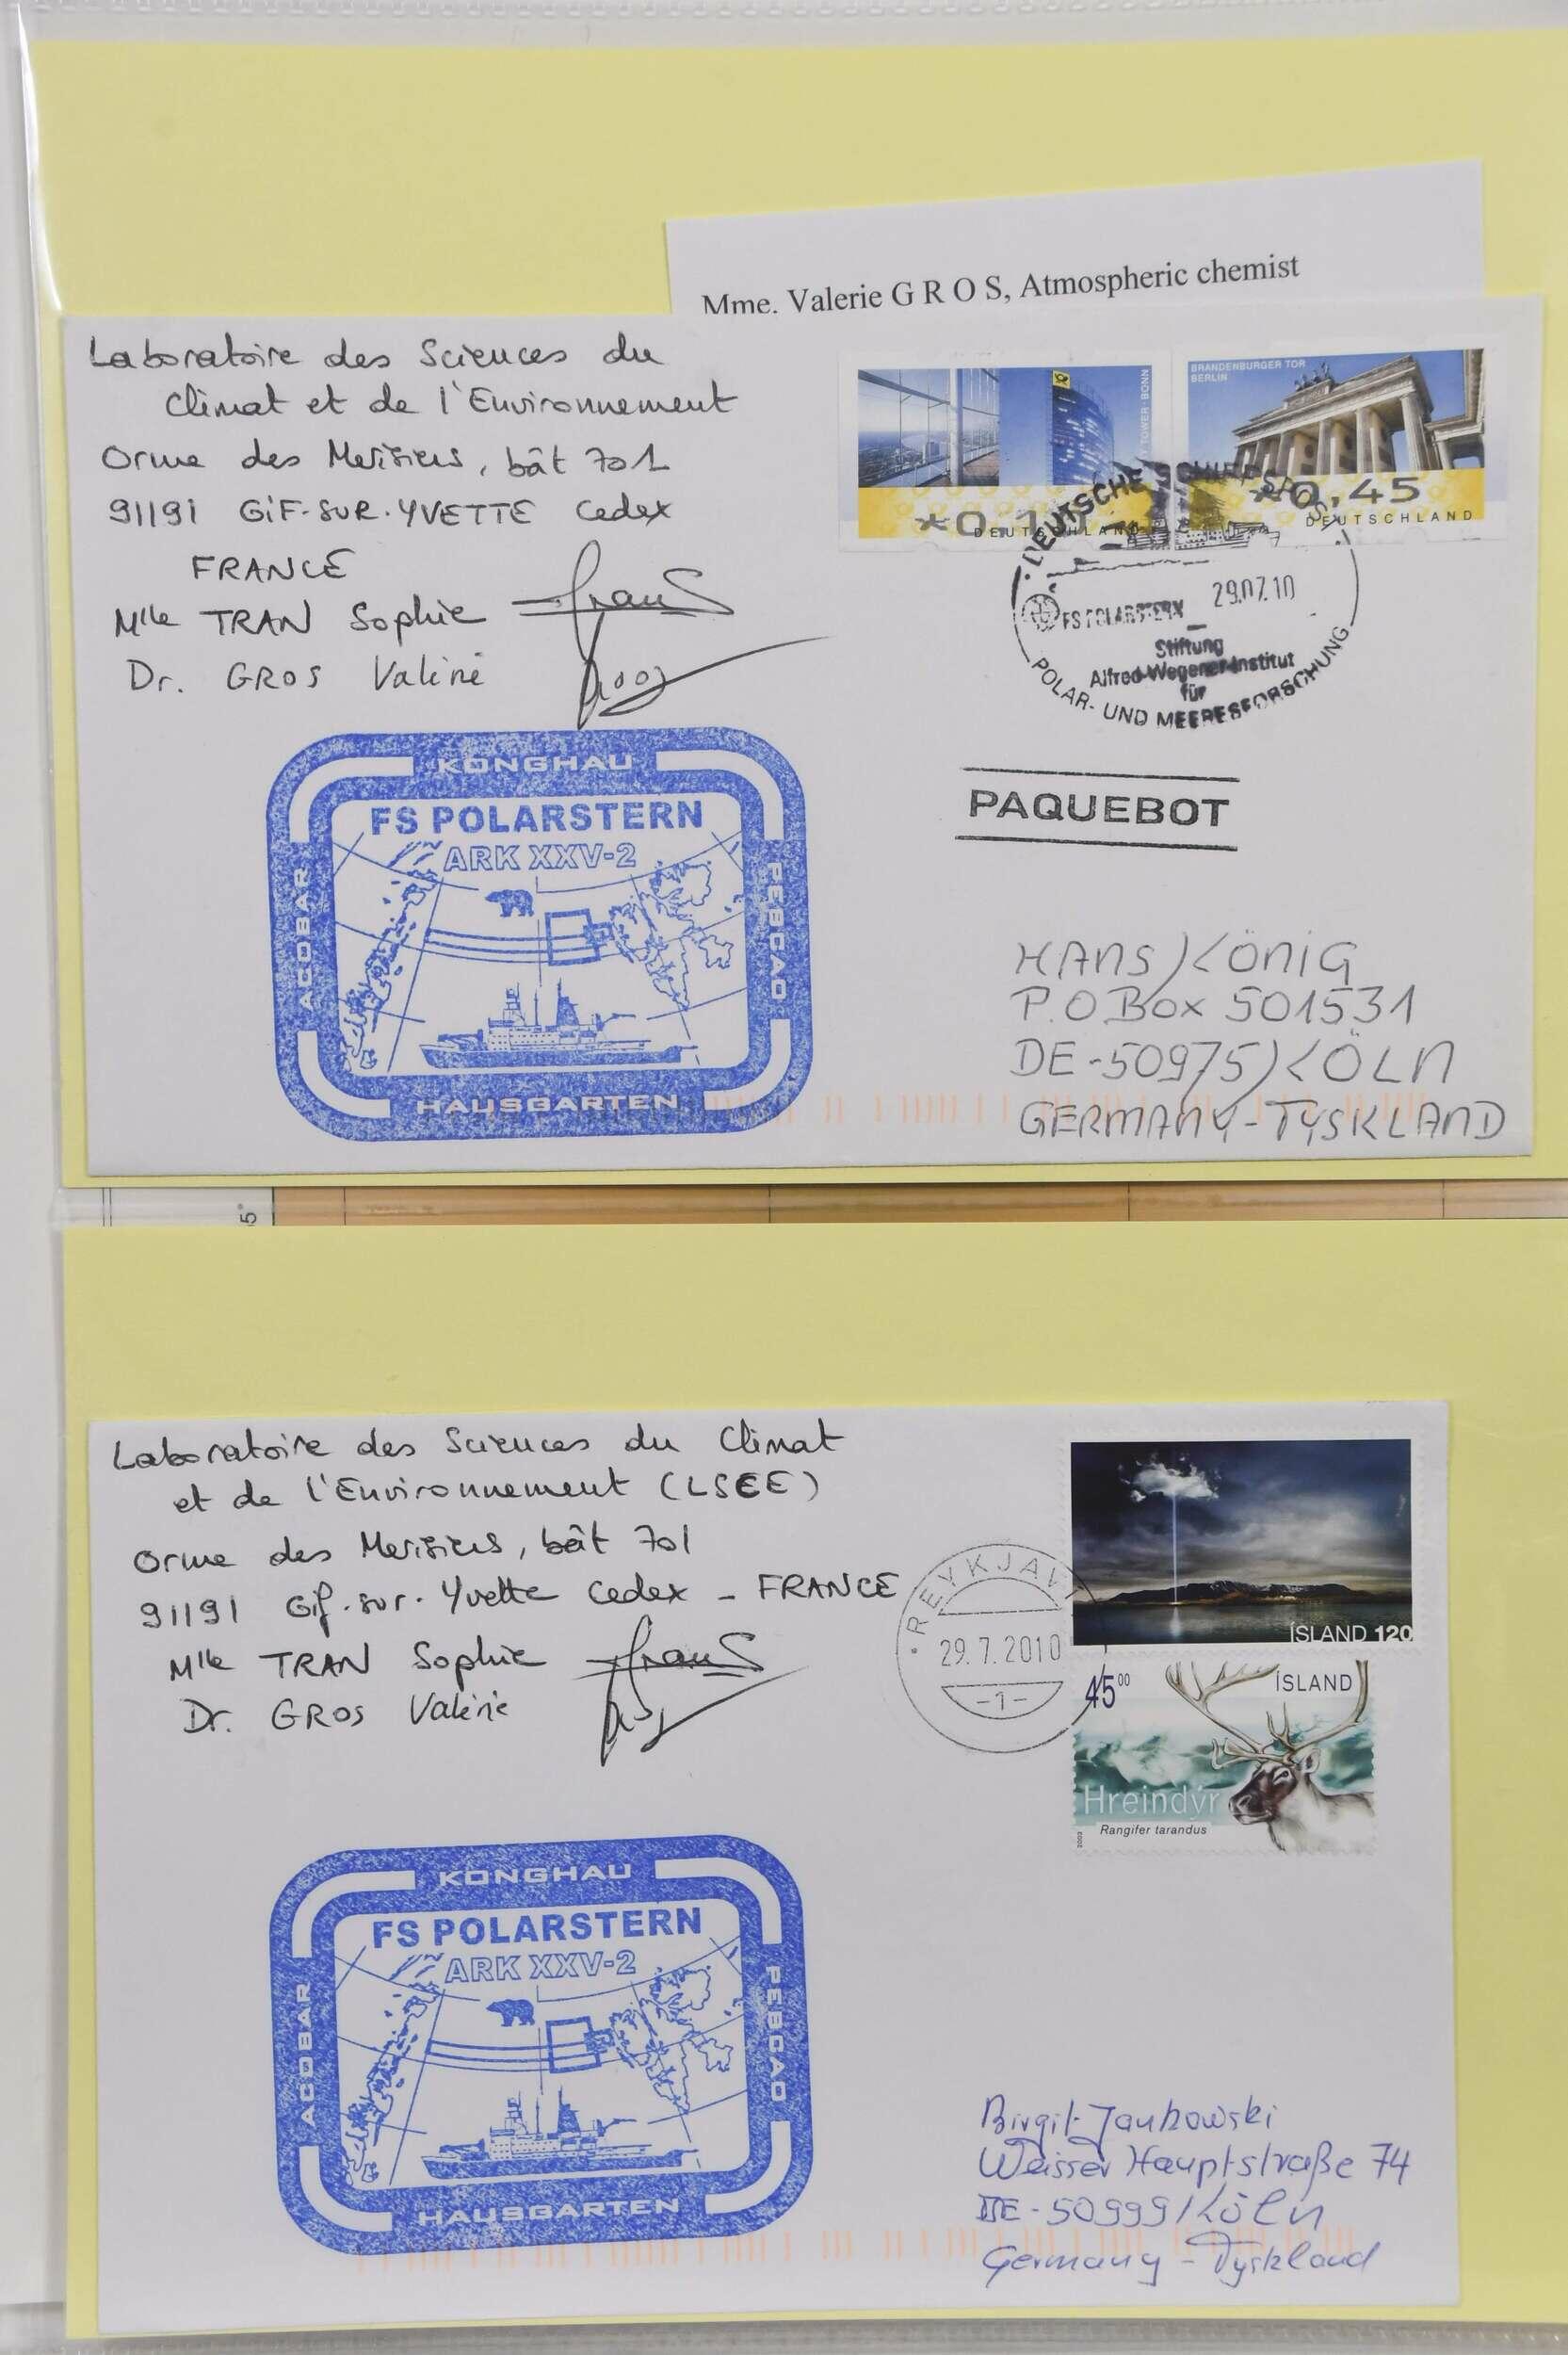 Mme. Valerie G R O S, Atmospheric chemist
Laboratoire des Sciences du
Climat et de l'Environnement
Orme des Merisiers, bât 701
91191 GIF-SUR-YVETTE Cedex
FRANCE
Mlle TRAN Sophie
Dr. GROS Valérie
TOWER · BONN
DEUTSCHLAND
BRANDENBURGER TOR
BERLIN
*0,45
DEUTSCHLAND
DEUTSCHE SCHIFFSPOST
29.07.10
FS POLARSTERN
Stiftung
Alfred-Wegener-Institut
für
POLAR- UND MEERESFORSCHUNG
PAQUEBOT
KONGHAU
FS POLARSTERN
ARK XXV-2
ACOBAR
PEBCAO
HAUSGARTEN
HANS KÖNIG
P.O.Box 501531
DE-50975 KÖLN
GERMANY-TYSKLAND
5°
Laboratoire des Sciences du Climat
et de l'Environnement (LSCE)
Orme des Merisiers, bât 701
91191 Gif-sur-Yvette Cedex - FRANCE
Mlle TRAN Sophie
Dr. GROS Valérie
REYKJAVÍK
29.7.2010
-1-
ÍSLAND 120
45⁰⁰
ÍSLAND
Hreindýr
Rangifer tarandus
KONGHAU
FS POLARSTERN
ARK XXV-2
ACOBAR
PEBCAO
HAUSGARTEN
Birgit Jankowski
Weisser Hauptstraße 74
DE-50999 Köln
Germany - Tyskland